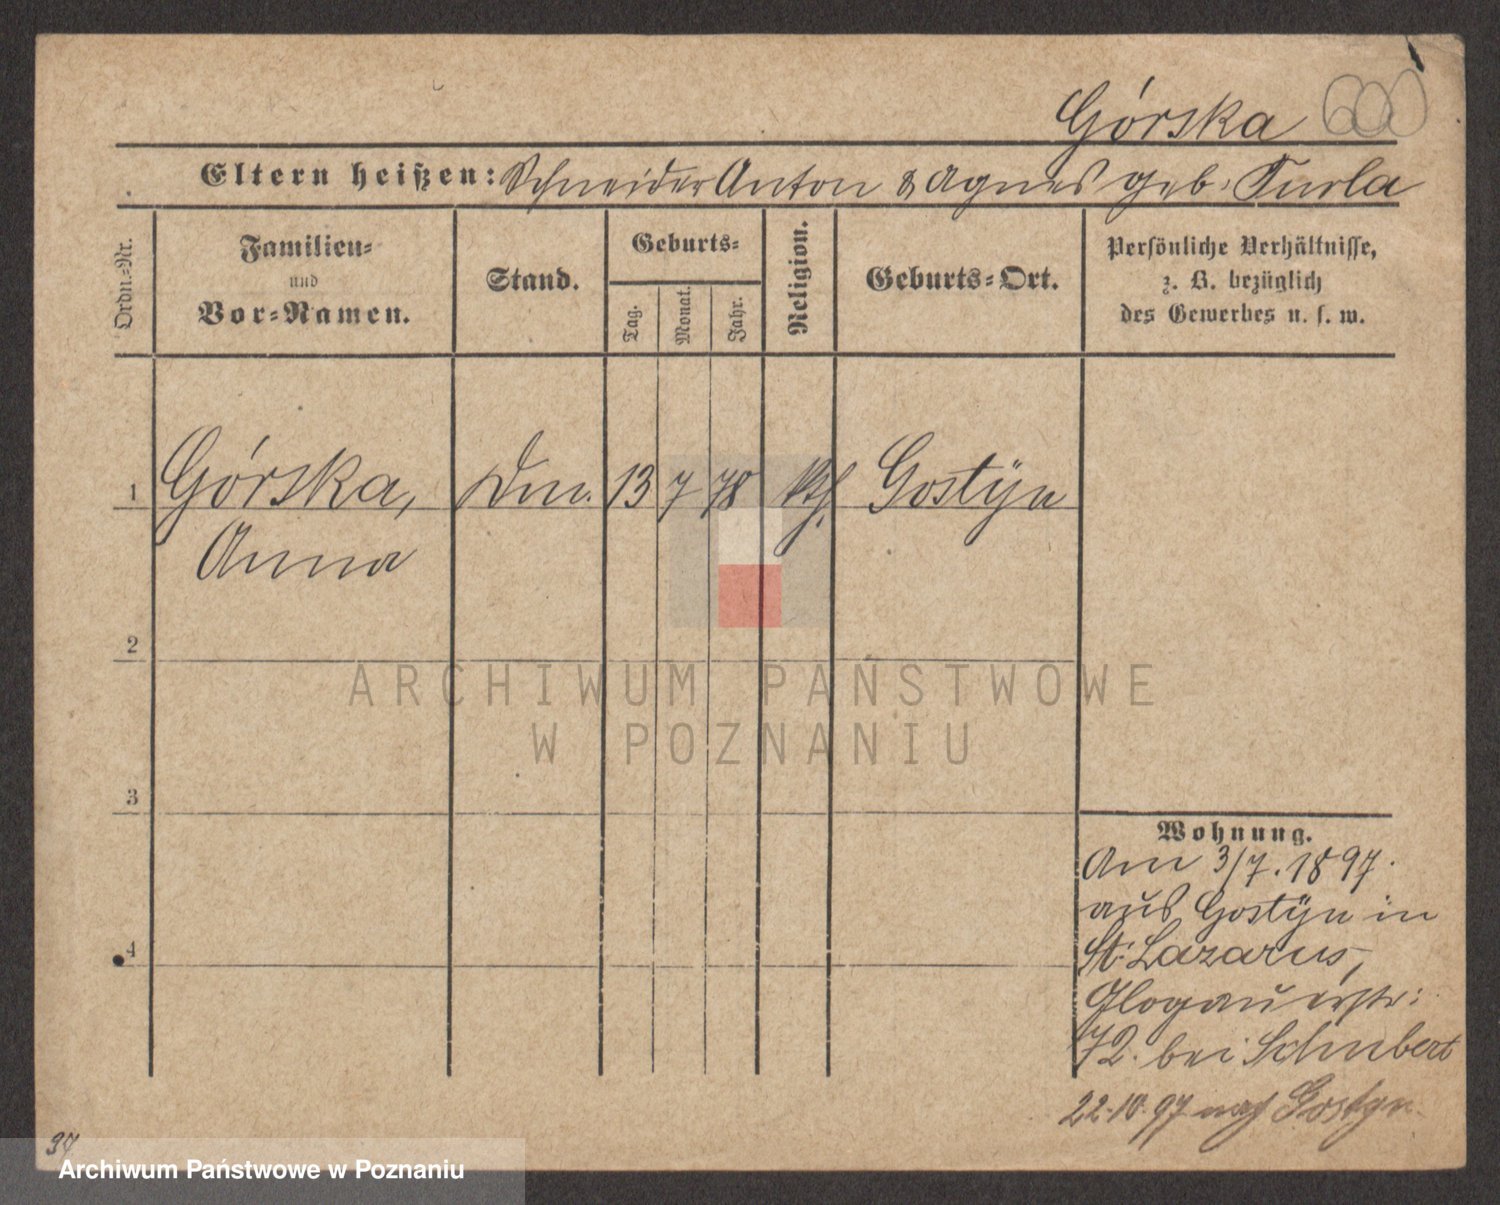 Górska 600
Eltern heißen: Schneider Anton & Agnes geb. Turla
Ordn.-Nr.
Familien-
und
Vor-Namen.
Stand.
Geburts-
Tag.
Monat.
Jahr.
Religion.
Geburts-Ort.
Persönliche Verhältnisse,
z. B. bezüglich
des Gewerbes u. s. w.
1 Górska, 13 7 78 kth. Gostÿn
Anna
2
3
4
ARCHIWUM PAŃSTWOWE
W POZNANIU
Wohnung.
Am 3/7. 1897.
aus Gostÿn in
St. Lazarus,
Glogauerstr:
72. bei Schubert
22.10.97 nach Gostyn.
37
Archiwum Państwowe w Poznaniu